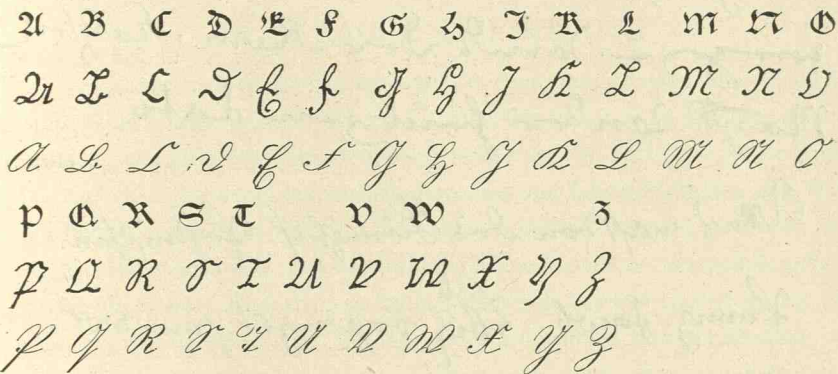 A B C D E F G H J K L M N O
A B C D E F G H J K L M N O
A B C D E F G H J K L M N O
P Q R S T V W Z
P Q R S T U V W X Y Z
P Q R S T U V W X Y Z